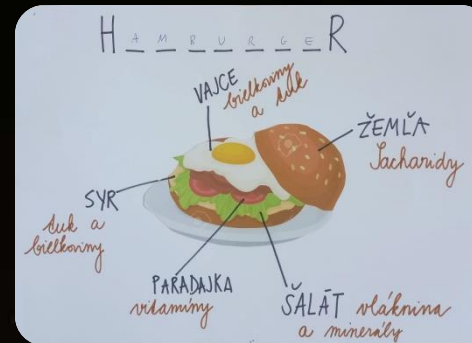 HAMBURGER
VAJCE
bielkoviny
a tuk
ŽEMĽA
Sacharidy
SYR
tuk a
bielkoviny
PARADAJKA
vitamíny
ŠALÁT vláknina
a minerály